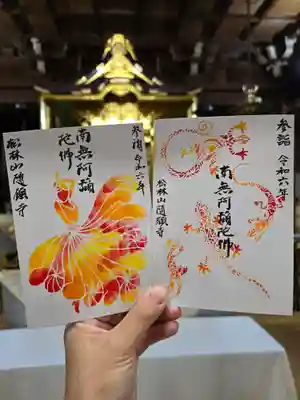 参詣 令和六年
南無阿彌
陀佛
船林山随願寺
参詣 令和六年
南無阿彌陀佛
船林山随願寺